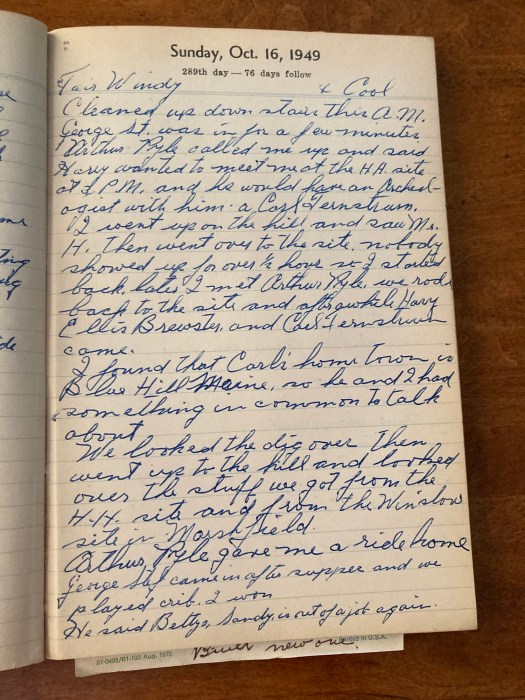 Sunday, Oct. 16, 1949
289th day — 76 days follow
Fair Windy & Cool
Cleaned up down stair this A.M.
George St. was in for a few minutes
Arthur Pyle called me up and said
Harry wanted to meet me at the H.H. site
at 2 P.M. and he would have an Archeol-
ogist with him - a Carl Fernstrum.
I went up on the hill and saw Mr.
H. then went over to the site, nobody
showed up for over ½ hour so I started
back, later I met Arthur Pyle, we rode
back to the site and after awhile Harry
Ellis Brewster, and Carl Fernstrum
came.
I found that Carl's home town, is
Blue Hill Maine, so he and I had
something in common to talk
about
We looked the dig over then
went up to the hill and looked
over the stuff we got from the
H.H. site and from the Winslow
site in Marshfield.
Arthur Pyle gave me a ride home
George St came in after supper and we
played crib. I won
He said Bettys, Sandy, is out of a job again.
Printed in U.S.A.
new one.